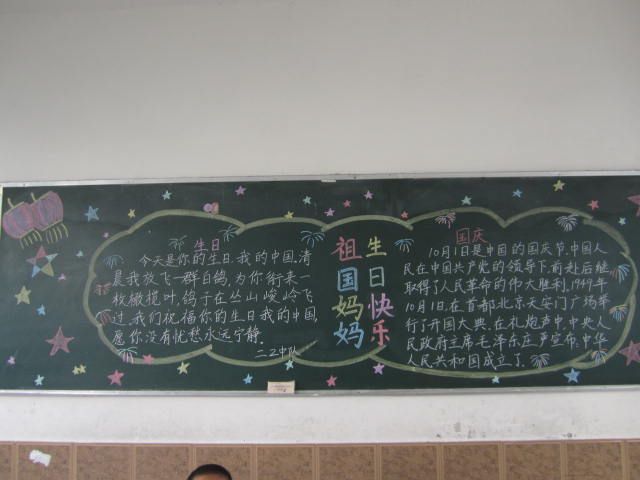 生日
今天是你的生日,我的中国,清
晨我放飞一群白鸽,为你衔来一
枚橄榄叶,鸽子在丛山峻岭飞
过.我们祝福你的生日我的中国,
愿你没有忧愁永远宁静.
二乙中队
祖国妈妈
生日快乐
国庆
10月1日是中国的国庆节.中国人
民在中国共产党的领导下,前赴后继
取得了人民革命的伟大胜利,1949年
10月1日,在首都北京天安门广场举
行了开国大典,在礼炮声中,中央人
民政府主席毛泽东庄严宣布,中华
人民共和国成立了.